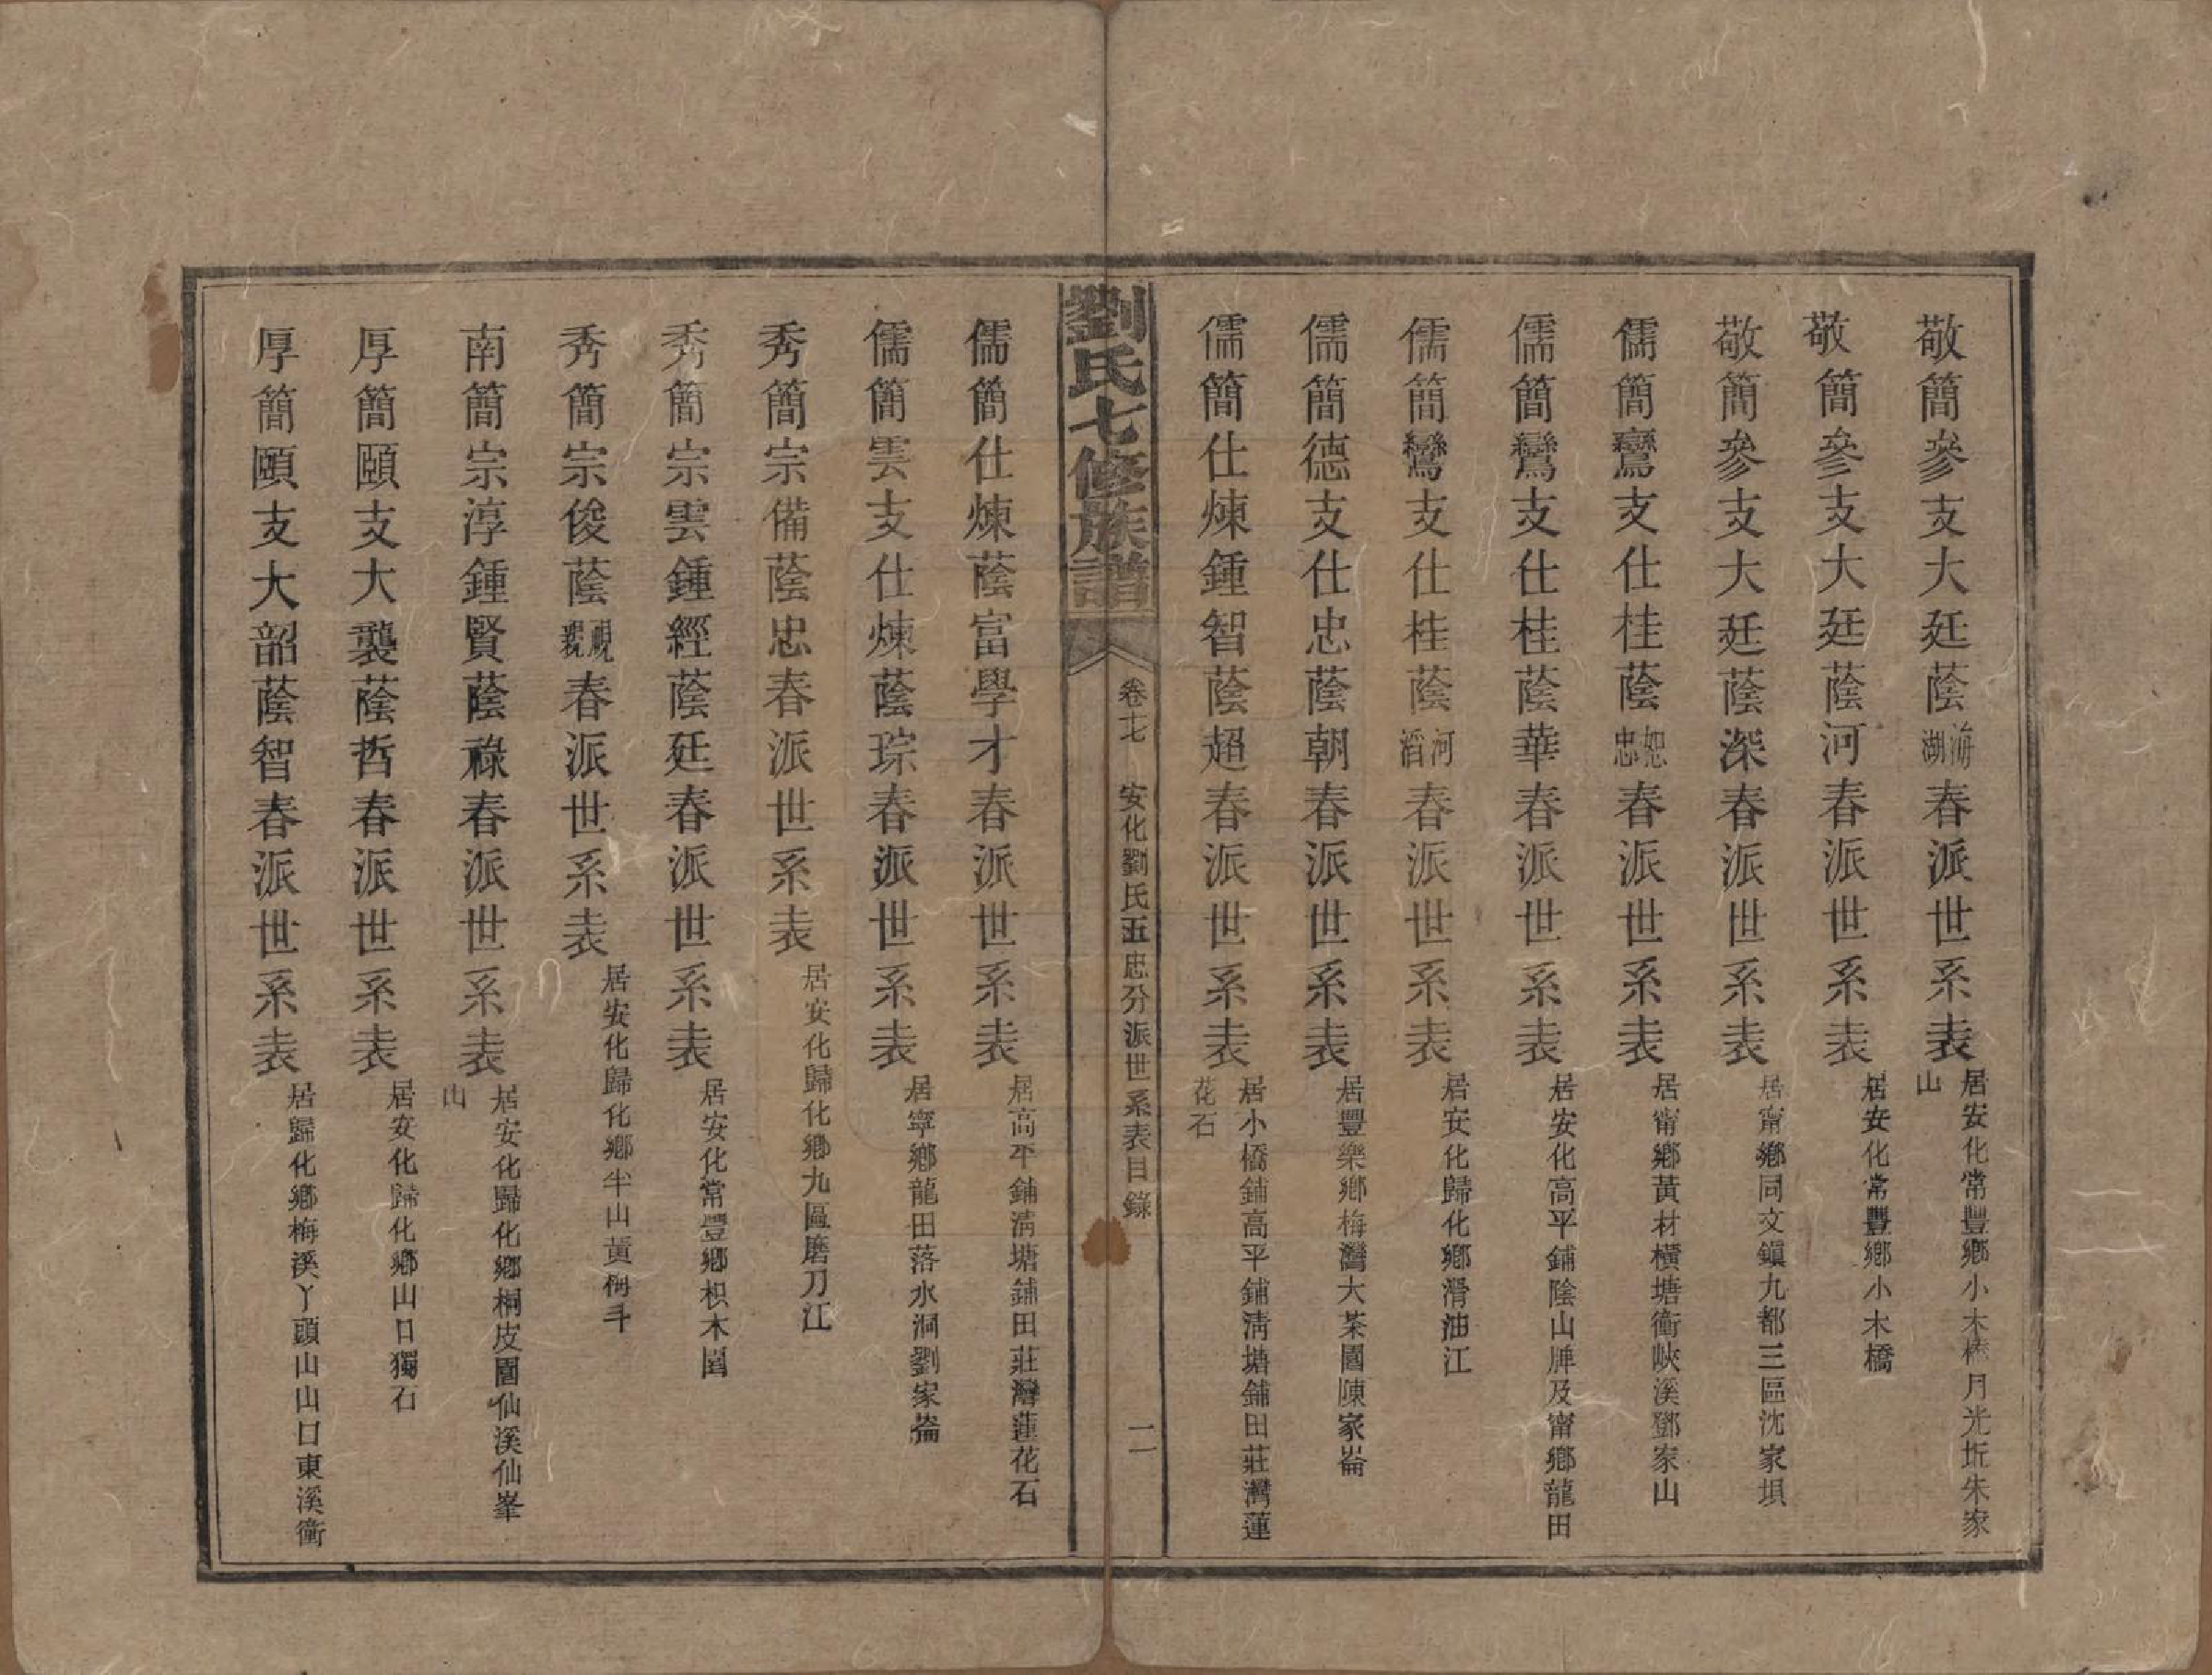 敬簡參支大廷蔭海湖春派世系表居安化常豐鄉小木橋月光坵朱家山
敬簡參支大廷蔭河春派世系表居安化常豐鄉小木橋
敬簡參支大廷蔭深春派世系表居甯鄉同文鎭九都三區沈家垻
儒簡鸞支仕桂蔭恕忠春派世系表居甯鄉黃材橫塘衝峽溪鄧家山
儒簡鸞支仕桂蔭華春派世系表居安化高平鋪陰山牌及甯鄉龍田
儒簡鸞支仕桂蔭河滔春派世系表居安化歸化鄉滑油江
儒簡德支仕忠蔭朝春派世系表居豐樂鄉梅灣大茶園陳家崙
儒簡仕煉鍾智蔭超春派世系表居小橋鋪高平鋪淸塘鋪田莊灣蓮花石
劉氏七修族譜 卷十七 安化劉氏五忠分派世系表目錄 二
儒簡仕煉蔭富學才春派世系表居高平鋪淸塘鋪田莊灣蓮花石
儒簡雲支仕煉蔭琮春派世系表居寧鄉龍田落水洞劉家崙
秀簡宗備蔭忠春派世系表居安化歸化鄉九區磨刀江
秀簡宗雲鍾經蔭廷春派世系表居安化常豐鄉枳木園
秀簡宗俊蔭覞親春派世系表居安化歸化鄉半山黃栴斗
南簡宗淳鍾賢蔭祿春派世系表居安化歸化鄉桐皮圍仙溪仙峯山
厚簡頤支大襲蔭哲春派世系表居安化歸化鄉山口獨石
厚簡頤支大韶蔭智春派世系表居歸化鄉梅溪丫頭山山口東溪衝